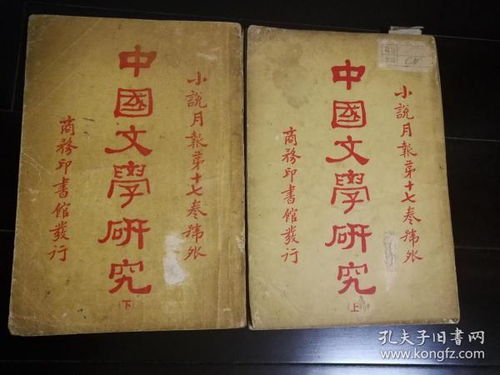 小說月報第十七卷號外
中國文學研究
下
商務印書館發行
小說月報第十七卷號外
中國文學研究
上
商務印書館發行
孔夫子旧书网
www.kongfz.com